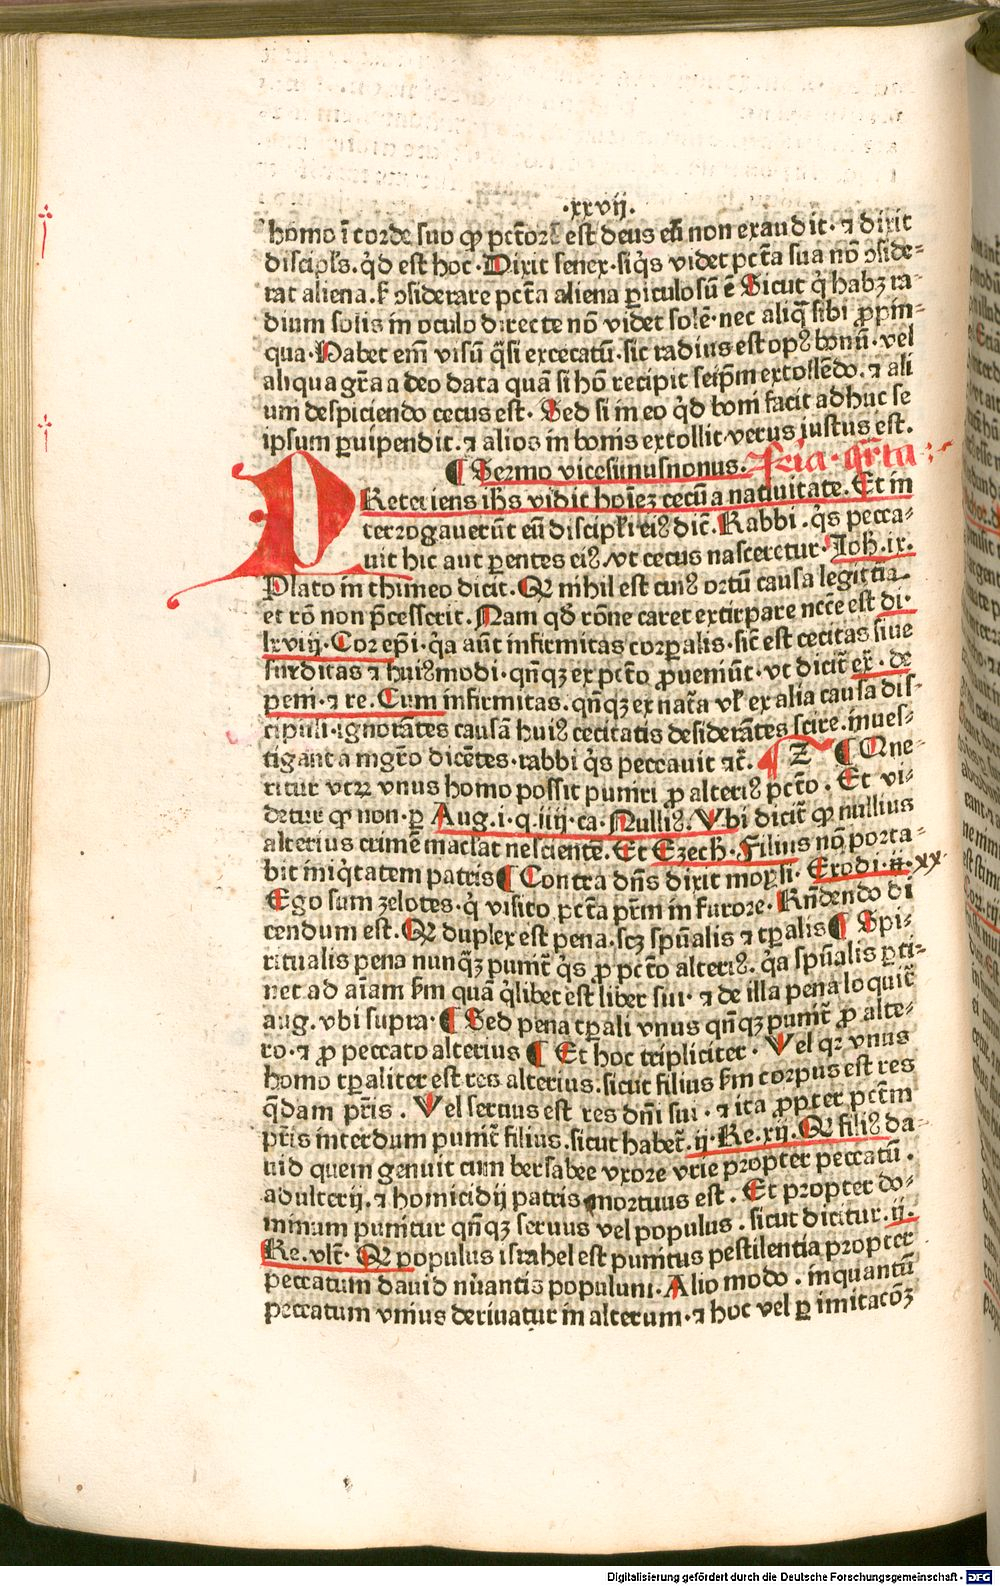 ·xxvij.
homo ī corde suo ꝙ pctōrē est deus eū non exaudit· ⁊ dixit
discipl's. q̇d est hoc· Dixit senex·siq̇s videt pctā sua nō ↄside⸗
rat aliena. s̄ ↄsiderare pctā aliena ꝑiculosū ē Sicut q̇ habꝫ ra⸗
dium solis in oculo directe nō videt solē· nec aliq̄ sibi ꝓpin⸗
qua·Habet em̄ visū q̄si excecatū· sic radius est opꝰ bonū·vel
aliqua gr̄a a deo data quā si hō recipit seip̄m extollēdo. ⁊ ali
um despiciendo cecus est· Sed si in eo q̇d boni facit adhuc se
ipsum ꝑuipendit.⁊ alios in bonis extollit verus iustus est.
¶ Sermo vicesimusnonus. Feria·qr̄ta
PReteriens ih̄s vidit hoīeꝫ cecū a natiuitate. Et in
terrogauerūt eū discipl'i eiꝰ dic̄. Rabbi·q̇s pecca⸗
uit hic aut ꝑentes eiꝰ vt cecus nasceretur·Joh̄.ix.
Plato in thimeo dicit. Qꝫ nihil est cuiꝰ ortū causa legittīa
et rō non p̄cesserit. Nam qd̄ rōne caret extirpare nccē est di·
lxviij· Cor ep̄i·q̇a aūt infirmitas corꝑalis·sic̄ est cecitas siue
surditas ⁊ huiꝰmodi·qn̄qꝫ ex pctō ꝓueniūt· vt dicit̄ ex̄· de
peni·⁊ re. Cum infirmitas. qn̄qꝫ ex nat̄a vl' ex alia causa dis⸗
cipuli·ignorātes causā huiꝰ cecitatis desiderātes scire. inues⸗
tigant a mgr̄o dicētes·rabbi q̇s peccauit ⁊c̄. ¶ Z ¶ Que⸗
ritur vtꝝ vnus homo possit puniri ꝓ alteriꝰ pctō. Et vi⸗
detur ꝙ non·ꝑ Aug.i·q.iiij·ca·Nulliꝰ. Vbi dicit̄ ꝙ nullius
alterius crimē maclat nescientē. Et Ezech̄·Filius nō porta⸗
bit iniq̇tatem patris¶ Contra dn̄s dixit moysi· Exodi·xx·
Ego sum zelotes·q̇ visito pctā pr̄m in furore. Rn̄dendo di
cendum est. Qꝫ duplex est pena·scꝫ spūalis ⁊ tꝑalis¶ Spi⸗
ritualis pena nunq̄ꝫ punit̄ q̇s ꝓ pctō alteriꝰ. q̇a spūalis ꝑti⸗
net ad aīam sm̄ quā q̇libet est liber sui· ⁊ de illa pena loquit̄
aug. vbi supra· ¶ Sed pena tꝑali vnus qn̄qꝫ punit̄ ꝓ alte⸗
ro·⁊ ꝓ peccato alterius ¶ Et hoc tripliciter· Vel qꝛ vnus
homo tꝑaliter est res alterius·sicut filius sm̄ corpus est res
q̄dam pr̄is. Vel seruus est res dn̄i sui·⁊ ita ꝓpter pctm̄
pr̄is interdum punit̄ filius·sicut habet̄·ij·Re·xij. Qꝫ filiꝰ da⸗
uid quem genuit cum bersabee vxore vrie propter peccatū·
adulterij·⁊ homicidij patris mortuus est. Et propter do⸗
minum punitur qn̄qꝫ seruus vel populus·sicut dicitur.ij.
Re·vlt̄· Qꝫ populus israhel est punitus pestilentia propter
peccatum dauid nūantis populum· Alio modo·inquantū
peccatum vnius deriuatur in alterum·⁊ hoc vel ꝑ imitacōꝫ
Digitalisierung gefördert durch die Deutsche Forschungsgemeinschaft · DFG